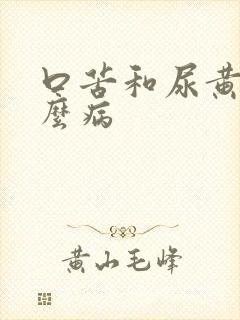 口苦和尿黄
麼病
黄山毛峰